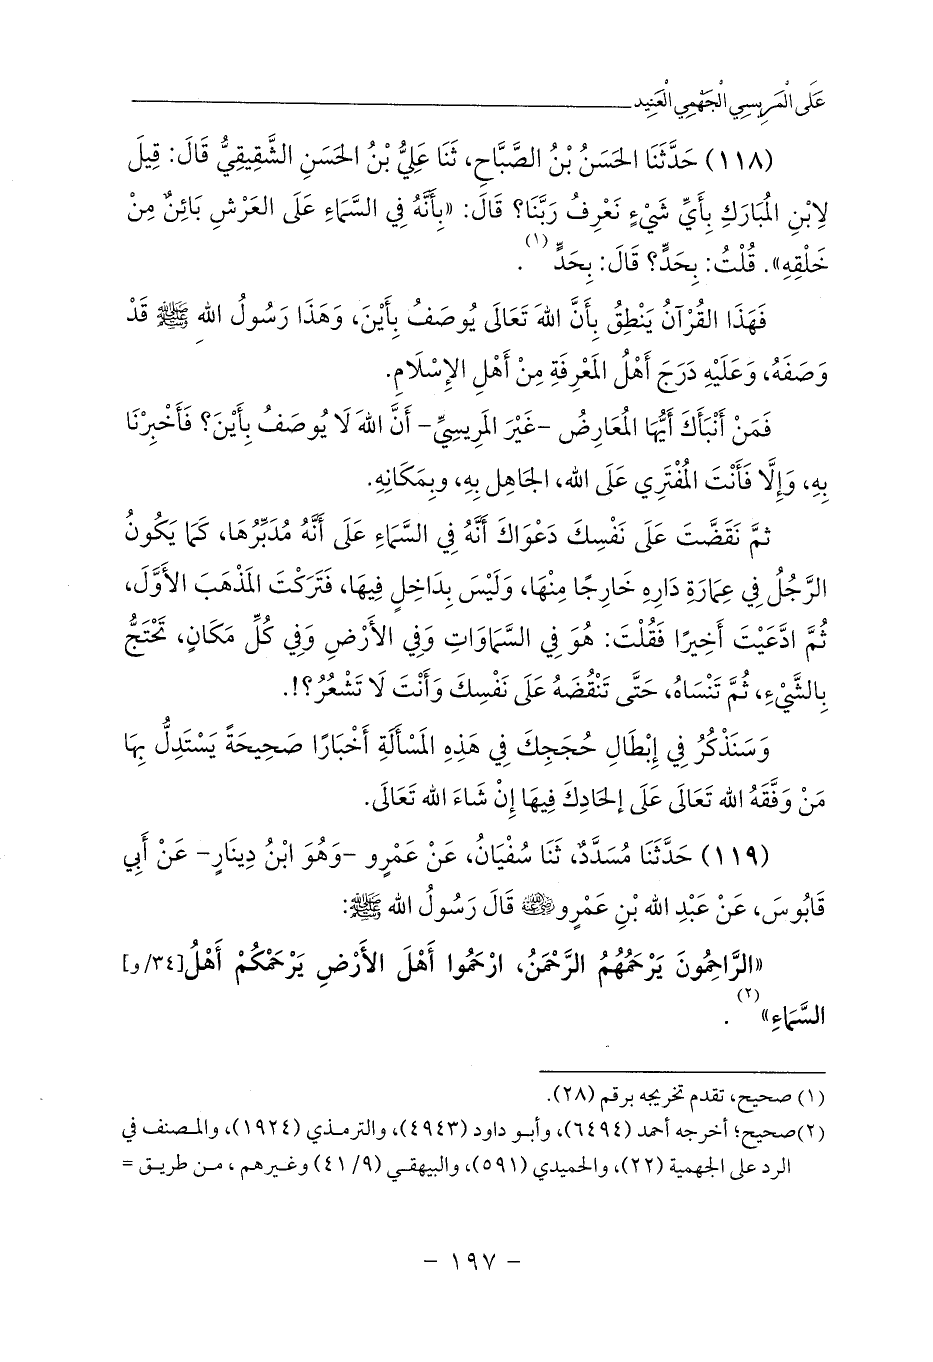 عَلَى الْمَرِيسِي الْجَهْمِي الْعَنِيد
(١١٨) حَدَّثَنَا الحَسَنُ بْنُ الصَّبَّاحِ، ثَنَا عَلِيُّ بْنُ الحَسَنِ الشَّقِيقِيُّ قَالَ: قِيلَ
لِابْنِ المُبَارَكِ بِأَيِّ شَيْءٍ نَعْرِفُ رَبَّنَا؟ قَالَ: «بِأَنَّهُ فِي السَّمَاءِ عَلَى العَرْشِ بَائِنٌ مِنْ
خَلْقِهِ». قُلْتُ: بِحَدٍّ؟ قَالَ: بِحَدٍّ (١).
فَهَذَا القُرْآنُ يَنْطِقُ بِأَنَّ اللهَ تَعَالَى يُوصَفُ بِأَيْنَ، وَهَذَا رَسُولُ اللهِ ﷺ قَدْ
وَصَفَهُ، وَعَلَيْهِ دَرَجَ أَهْلُ المَعْرِفَةِ مِنْ أَهْلِ الإِسْلَامِ.
فَمَنْ أَنْبَأَكَ أَيُّهَا المُعَارِضُ -غَيْرَ المَرِيسِيِّ- أَنَّ اللهَ لَا يُوصَفُ بِأَيْنَ؟ فَأَخْبِرْنَا
بِهِ، وَإِلَّا فَأَنْتَ المُفْتَرِي عَلَى الله، الجَاهِلِ بِهِ، وبِمَكَانِهِ.
ثمَّ نَقَضَّتَ عَلَى نَفْسِكَ دَعْوَاكَ أَنَّهُ فِي السَّمَاءِ عَلَى أَنَّهُ مُدَبِّرُهَا، كَمَا يَكُونُ
الرَّجُلُ فِي عِمَارَةِ دَارِهِ خَارِجًا مِنْهَا، وَلَيْسَ بِدَاخِلٍ فِيهَا، فَتَرَكْتَ المَذْهَبَ الأَوَّلَ،
ثُمَّ ادَّعَيْتَ أَخِيرًا فَقُلْتَ: هُوَ فِي السَّمَاوَاتِ وَفِي الأَرْضِ وَفِي كُلِّ مَكَانٍ، تَحْتَجُّ
بِالشَّيْءِ، ثُمَّ تَنْسَاهُ، حَتَّى تَنْقُضَهُ عَلَى نَفْسِكَ وَأَنْتَ لَا تَشْعُرُ؟!.
وَسَنَذْكُرُ فِي إِبْطَالِ حُجَجِكَ فِي هَذِهِ المَسْأَلَةِ أَخْبَارًا صَحِيحَةً يَسْتَدِلُّ بِهَا
مَنْ وَفَّقَهُ الله تَعَالَى عَلَى إِلحَادِكَ فِيهَا إِنْ شَاءَ الله تَعَالَى.
(١١٩) حَدَّثَنَا مُسَدَّدٌ، ثَنَا سُفْيَانُ، عَنْ عَمْرٍو -وَهُوَ ابْنُ دِينَارٍ- عَنْ أَبِي
قَابُوسَ، عَنْ عَبْدِ الله بْنِ عَمْرٍو رضي الله عنه قَالَ رَسُولُ الله ﷺ:
«الرَّاحِمُونَ يَرْحَمُهُمُ الرَّحْمَنُ، ارْحَمُوا أَهْلَ الأَرْضِ يَرْحَمْكُمْ أَهْلُ [٣٤/و]
السَّمَاءِ» (٢).
(١) صحيح، تقدم تخريجه برقم (٢٨).
(٢) صحيح؛ أخرجه أحمد (٦٤٩٤)، وأبو داود (٤٩٤٣)، والترمذي (١٩٢٤)، والمصنف في
الرد على الجهمية (٢٢)، والحميدي (٥٩١)، والبيهقي (٩/ ٤١) وغيرهم، من طريق =
- ١٩٧ -